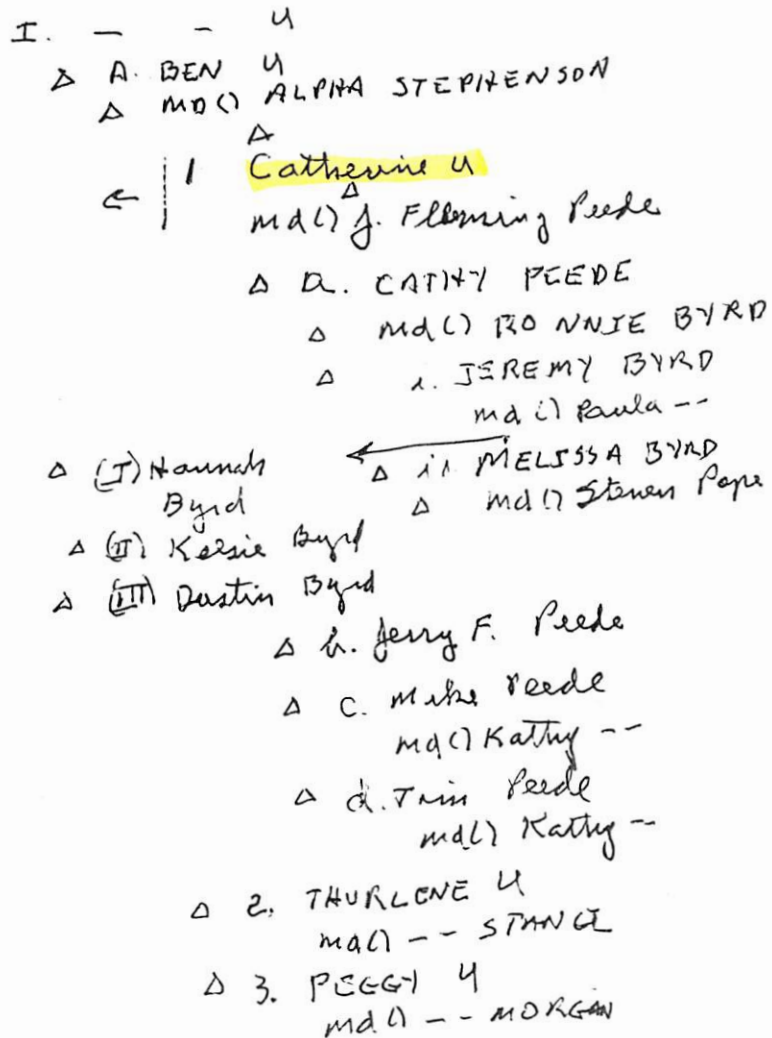 I. - - U
Δ A. BEN U
Δ MD() ALPHA STEPHENSON
Δ
← 1 Catherine U
Δ
md() J. Flleming Peede
Δ a. CATHY PEEDE
Δ md() RONNIE BYRD
Δ i. JEREMY BYRD
md() Paula --
Δ ii MELISSA BYRD
Δ md() Steven Pope
Δ (I) Hannah
Byrd
Δ (II) Kelsie Byrd
Δ (III) Dustin Byrd
Δ b. Jerry F. Peede
Δ C. Mike Peede
md() Kathy --
Δ d. Tim Peede
md() Kathy --
Δ 2. THURLENE U
md() --
Δ 3. PEGGY U
md() -- MORGAN